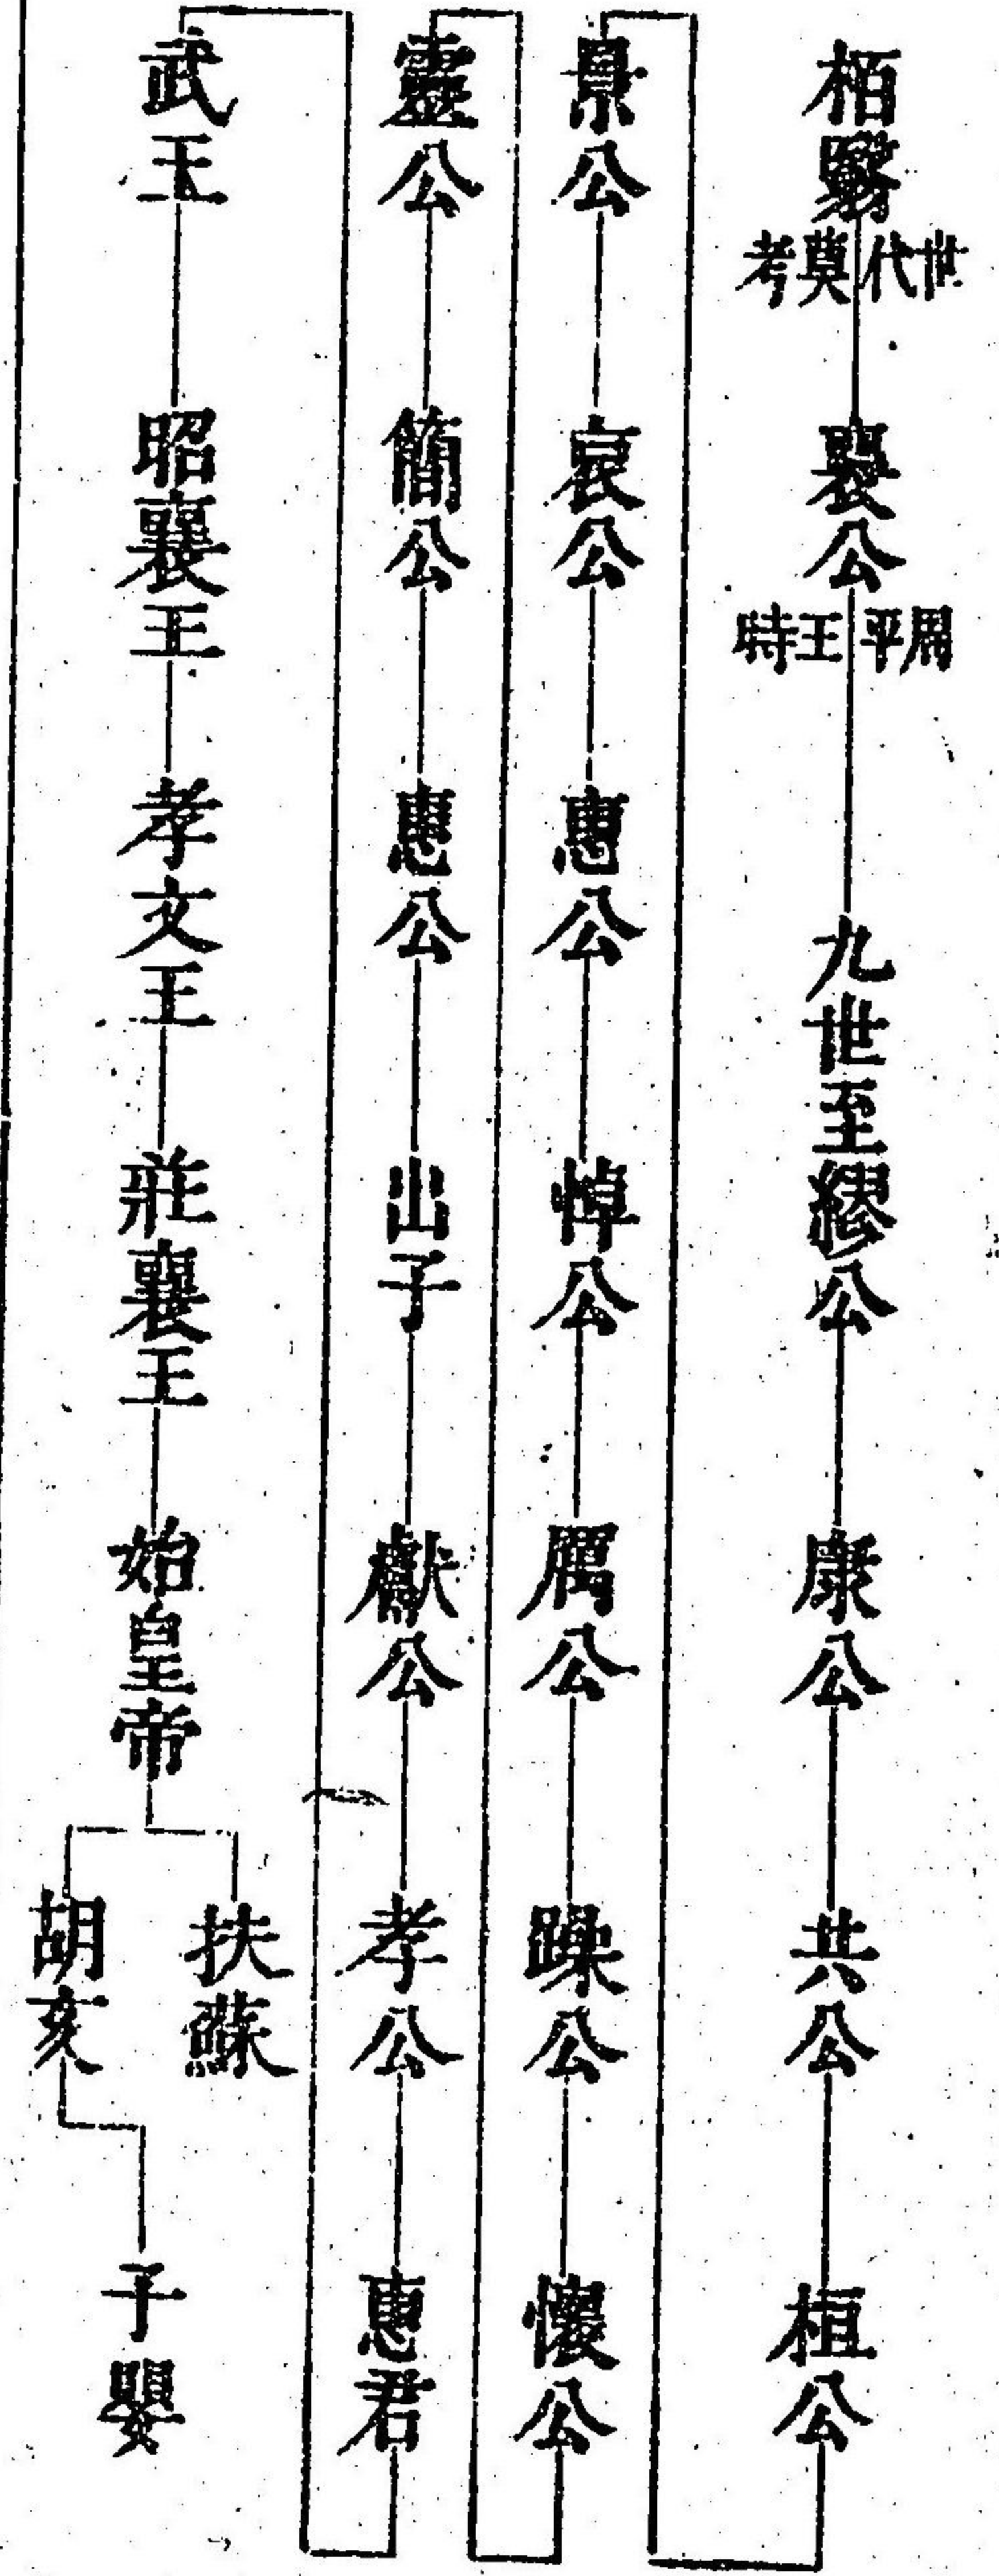 栢翳
世代莫考
襄公
周平王時
九世至繆公
康公
共公
桓公
景公
哀公
惠公
悼公
厲公
躁公
懷公
靈公
簡公
惠公
出子
獻公
孝公
惠君
武王
昭襄王
孝文王
莊襄王
始皇帝
扶蘇
胡亥
子嬰